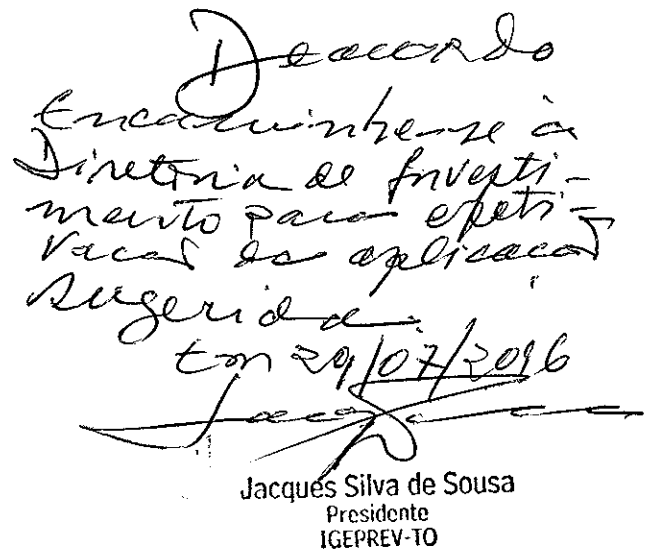 De acordo
Encaminhe-se à
Diretoria de Investi-
mento para efeti-
vacão da aplicacão
sugerida
Em 29/07/2016
Jacques Silva de Sousa
Presidente
IGEPREV-TO